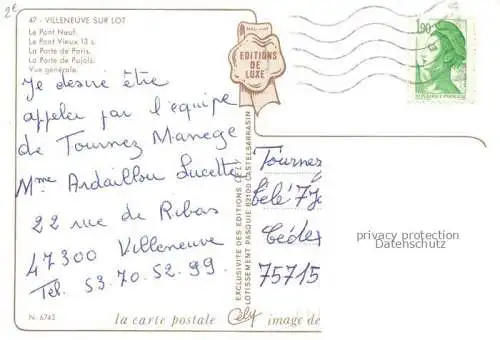 2€
47 - VILLENEUVE SUR LOT
Le Pont Neuf.
Le Pont Vieux 13 s.
La Porte de Paris.
La Porte de Pujols.
Vue générale.
EDITIONS
DE
LUXE
1,90
Je desire être
appeler par l'equipe
de Tournez Manege
Mme Ardaillou Lucette
22 rue de Ribas
47300 Villeneuve
Tel. 53.70.52.99
EXCLUSIVITE DES EDITIONS
LOTISSEMENT PASQUIE 82100 CASTELSARRASIN
Tournez
Télé 7 Je
Cedex
75715
privacy protection
Datenschutz
N. 6743
la carte postale Cely image de